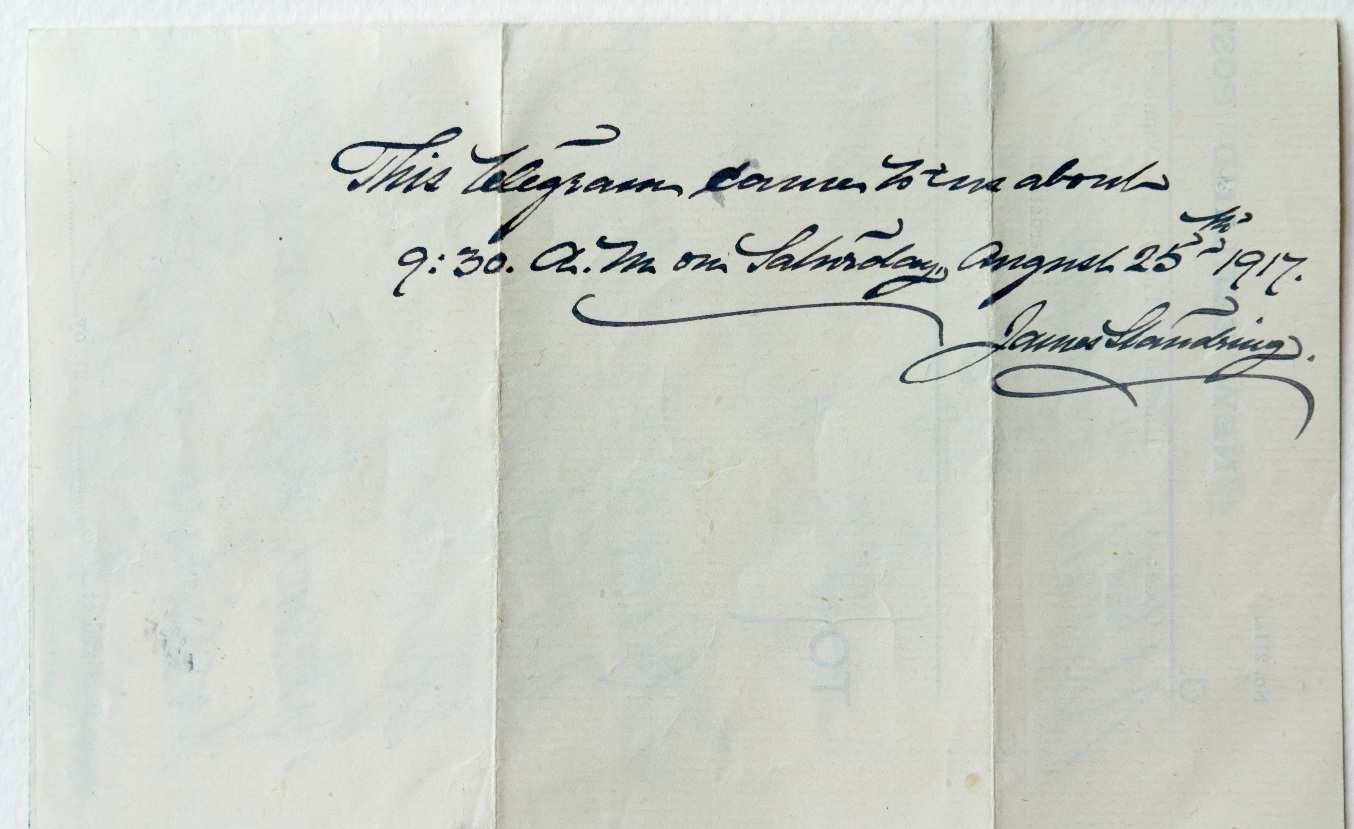 This telegram came to us about
9:30. A.M on Saturday, August 25th 1917.
James Standring.
TO